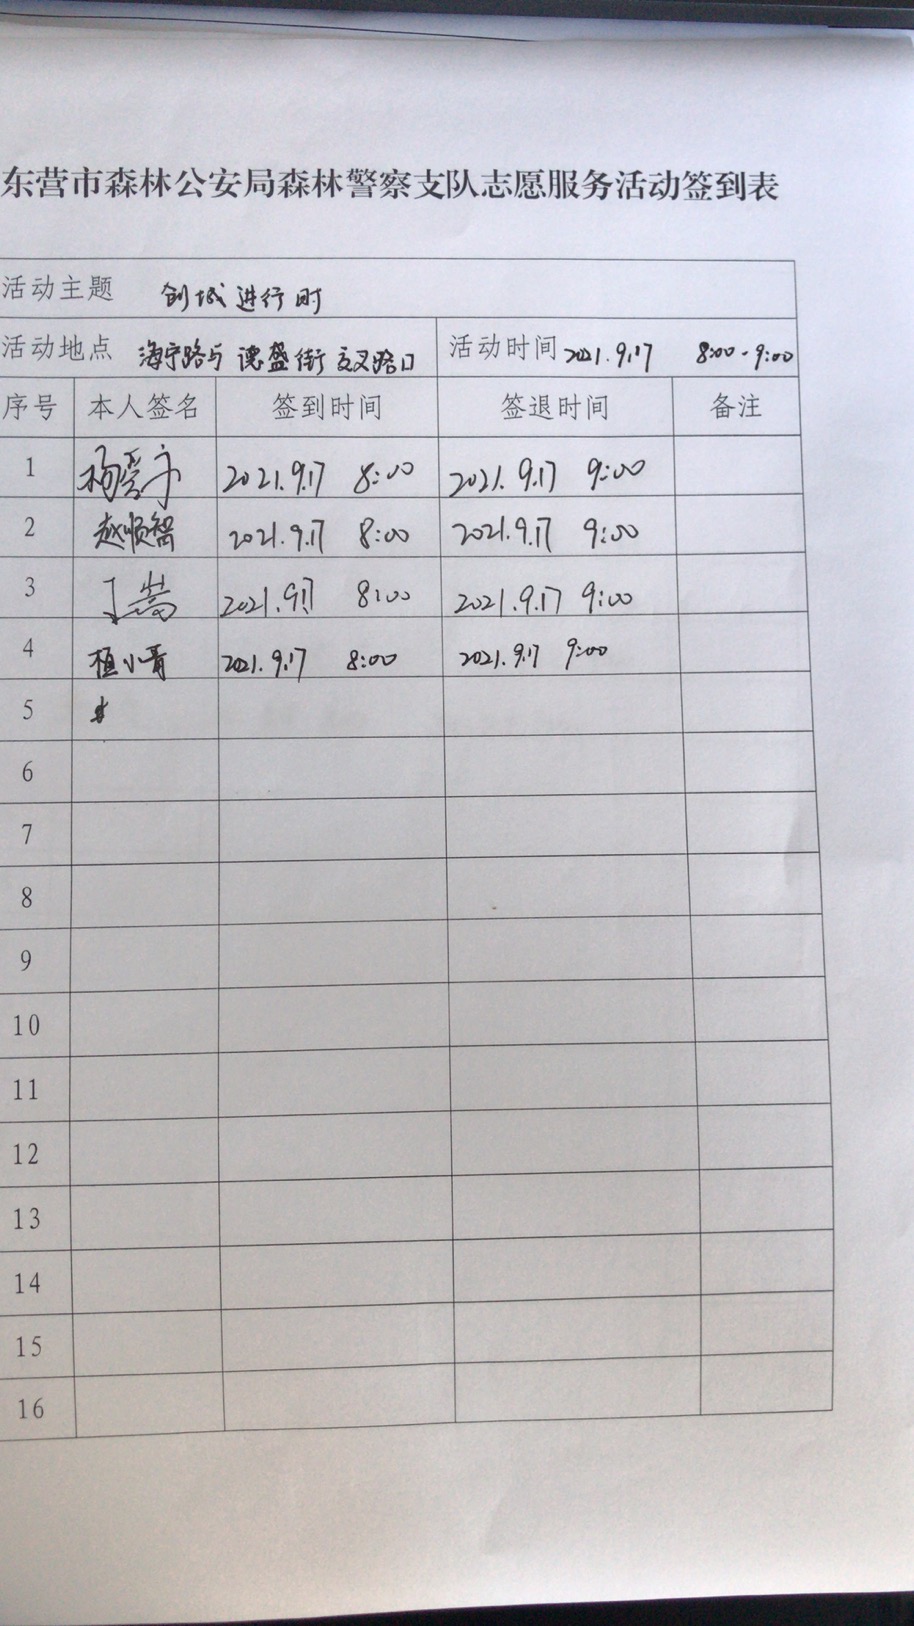 东营市森林公安局森林警察支队志愿服务活动签到表
活动主题 创城进行时
活动地点 海宁路与德盛街交叉路口 活动时间 2021.9.17 8:00-9:00
序号 本人签名 签到时间 签退时间 备注
1 2021.9.17 8:00 2021.9.17 9:00
2 赵顺智 2021.9.17 8:00 2021.9.17 9:00
3 丁嵩 2021.9.17 8:00 2021.9.17 9:00
4 植小青 2021.9.17 8:00 2021.9.17 9:00
5
6
7
8
9
10
11
12
13
14
15
16